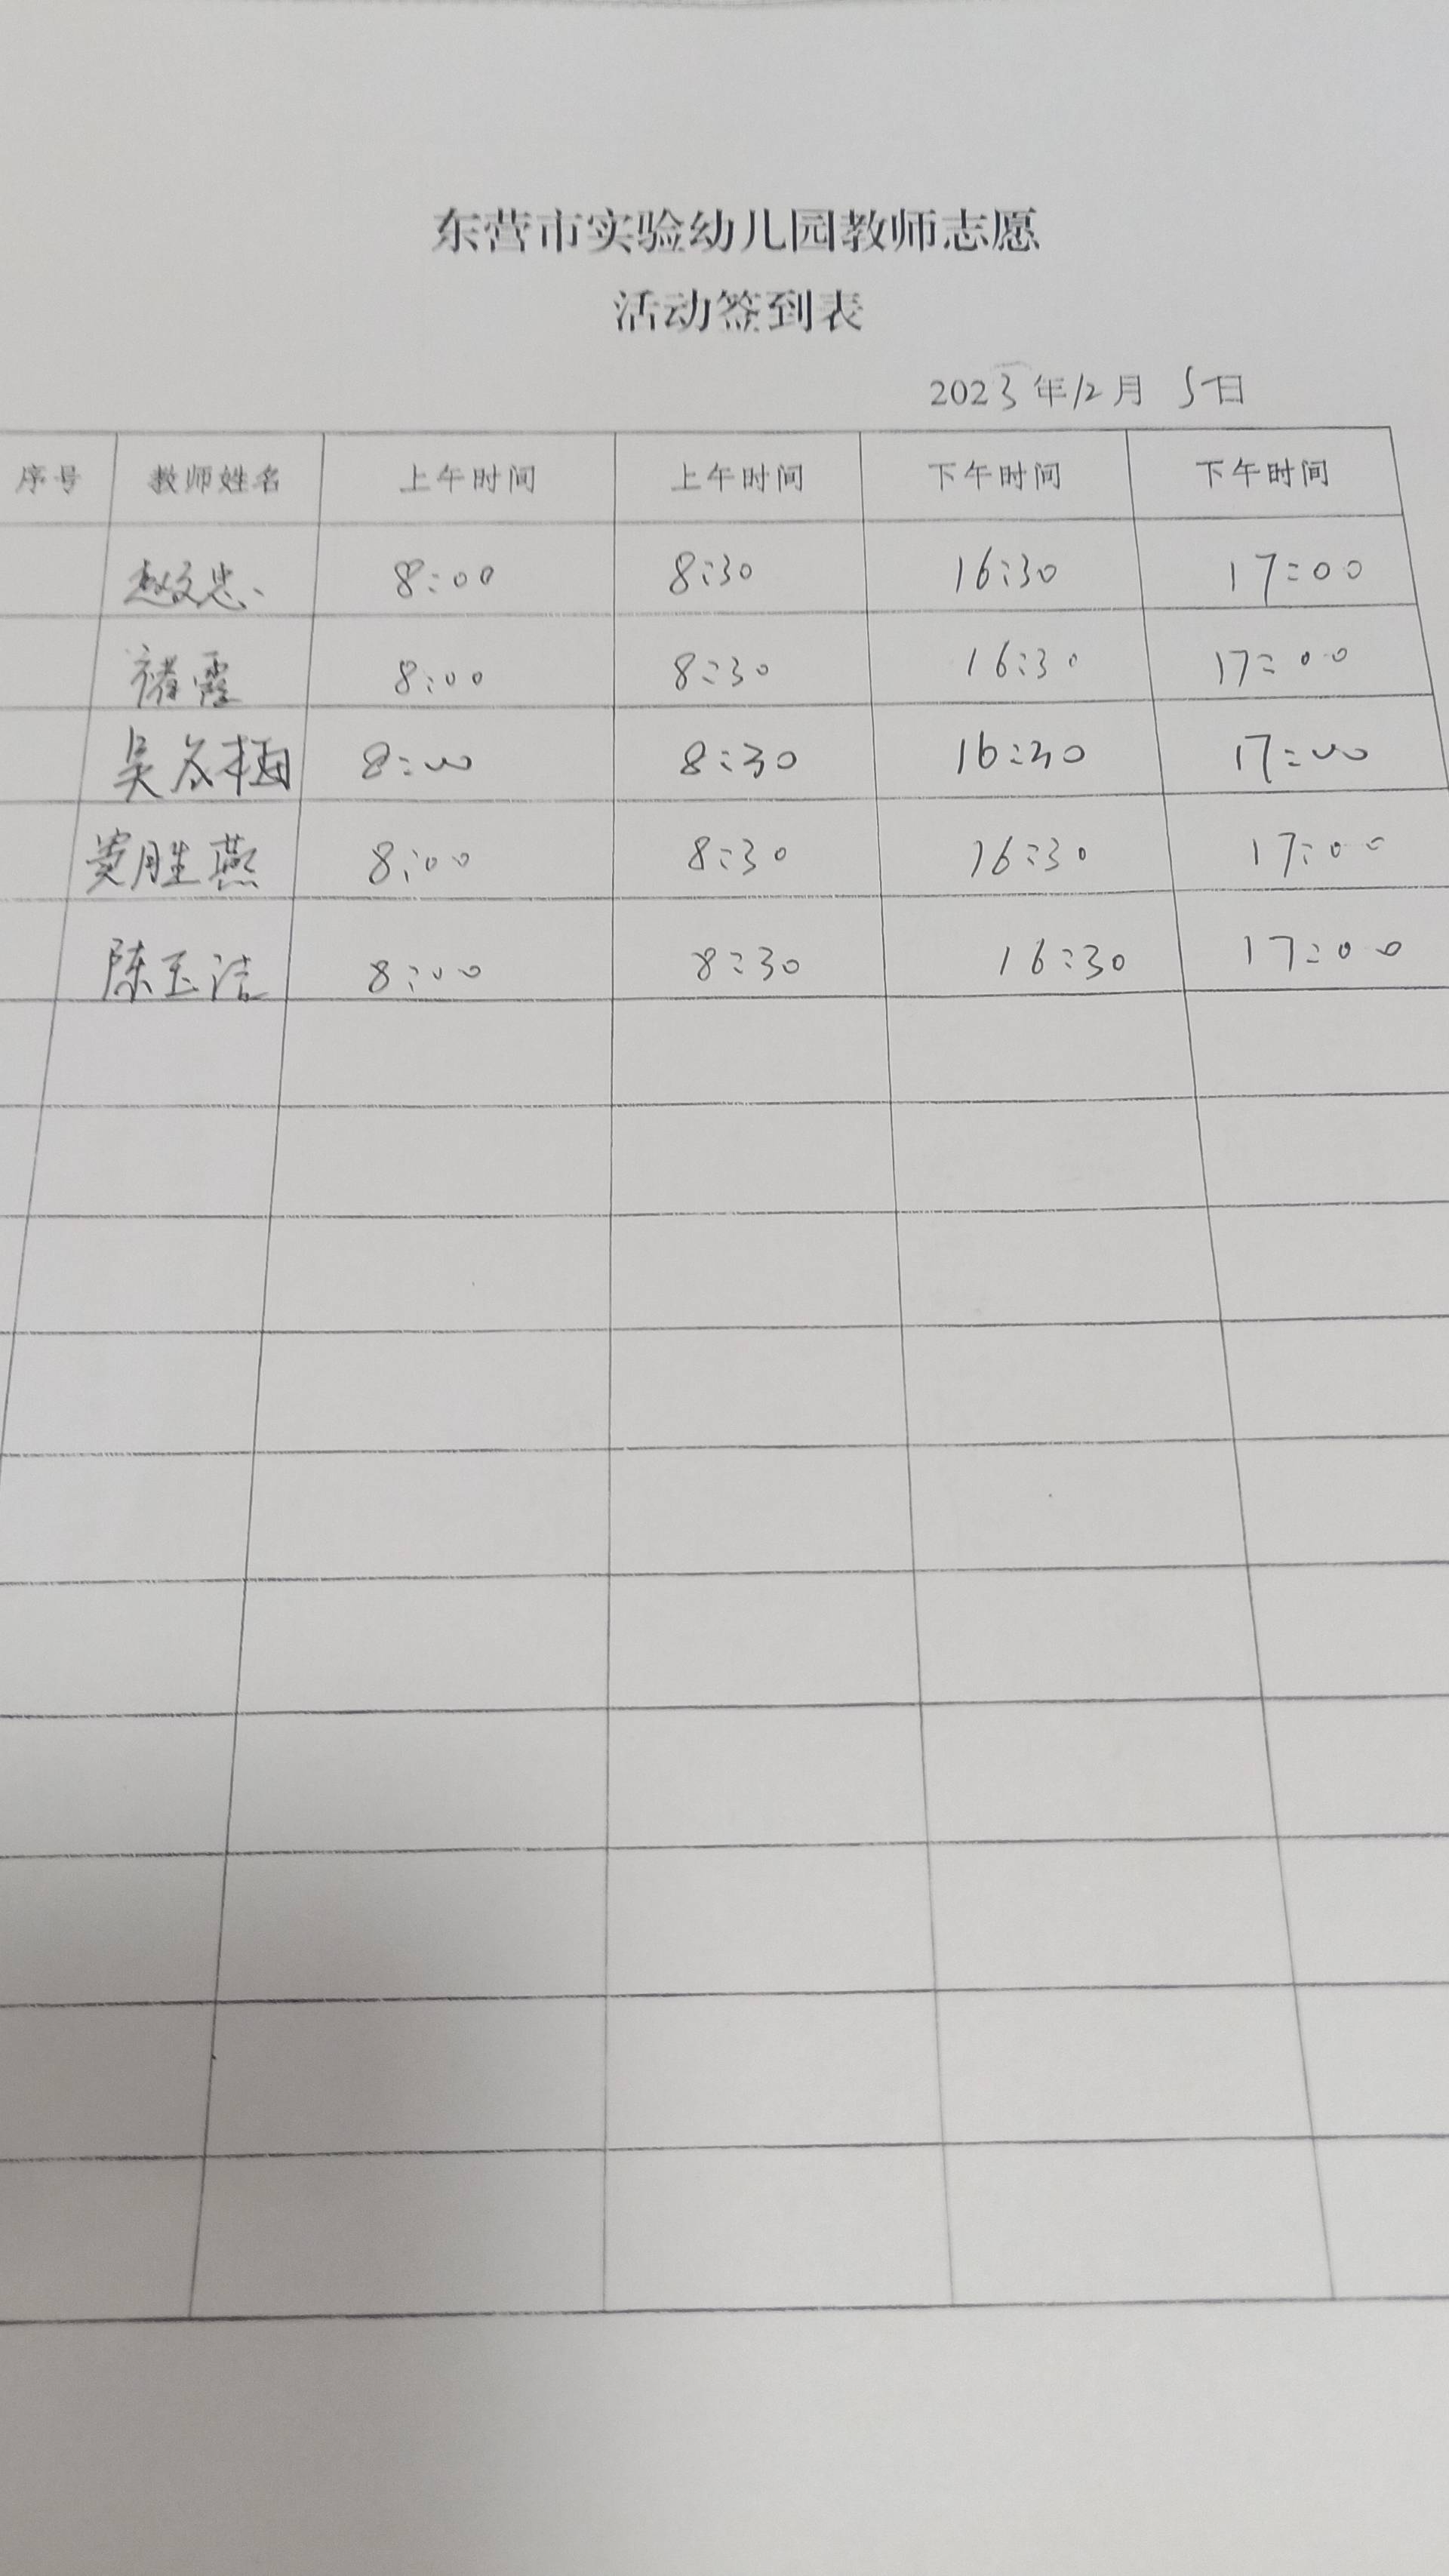 东营市实验幼儿园教师志愿
活动签到表
2023年12月 5日
序号 教师姓名 上午时间 上午时间 下午时间 下午时间
赵文忠 8:00 8:30 16:30 17:00
褚霞 8:00 8:30 16:30 17:00
吴冬梅 8:00 8:30 16:30 17:00
贾胜燕 8:00 8:30 16:30 17:00
陈玉洁 8:00 8:30 16:30 17:00